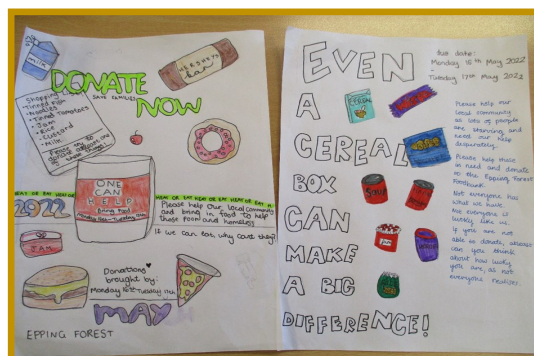 milk
HERSHEY'S
bar
DONATE
SAVE FAMILIES
NOW
Shopping
• Tinned fish
• Noodles
• Tinned tomatoes
• Jam
• Rice
• Custard
• Milk
Please try to
donate
these things!
ONE
CAN
HELP
Bring Food
Monday 16th - Tuesday 17th
HEAT OR EAT HEAT OR EAT
2022
HEAT OR EAT HEAT OR EAT HEAT OR EAT
Please help Our local community
and bring in food to help
those poor and homeless
If we can eat, why can't they?
JAM
Donations
brought by:
Monday 16th Tuesday 17th
MAY
EPPING FOREST
EVEN
A
CEREAL
BOX
CAN
MAKE
A BIG
DIFFERENCE!
due date:
Monday 16th May 2022
-
Tuesday 17th May 2022
Please help our
local community
as lots of people
are starving and
need our help
desperately.
Please help those
in need and donate
to the Epping Forest
foodbank.
Not everyone has
what we have.
Not everyone is
lucky like us.
If you are not
able to donate, please
can you think
about how lucky
you are, as not
everyone realises.
Soup
Jam